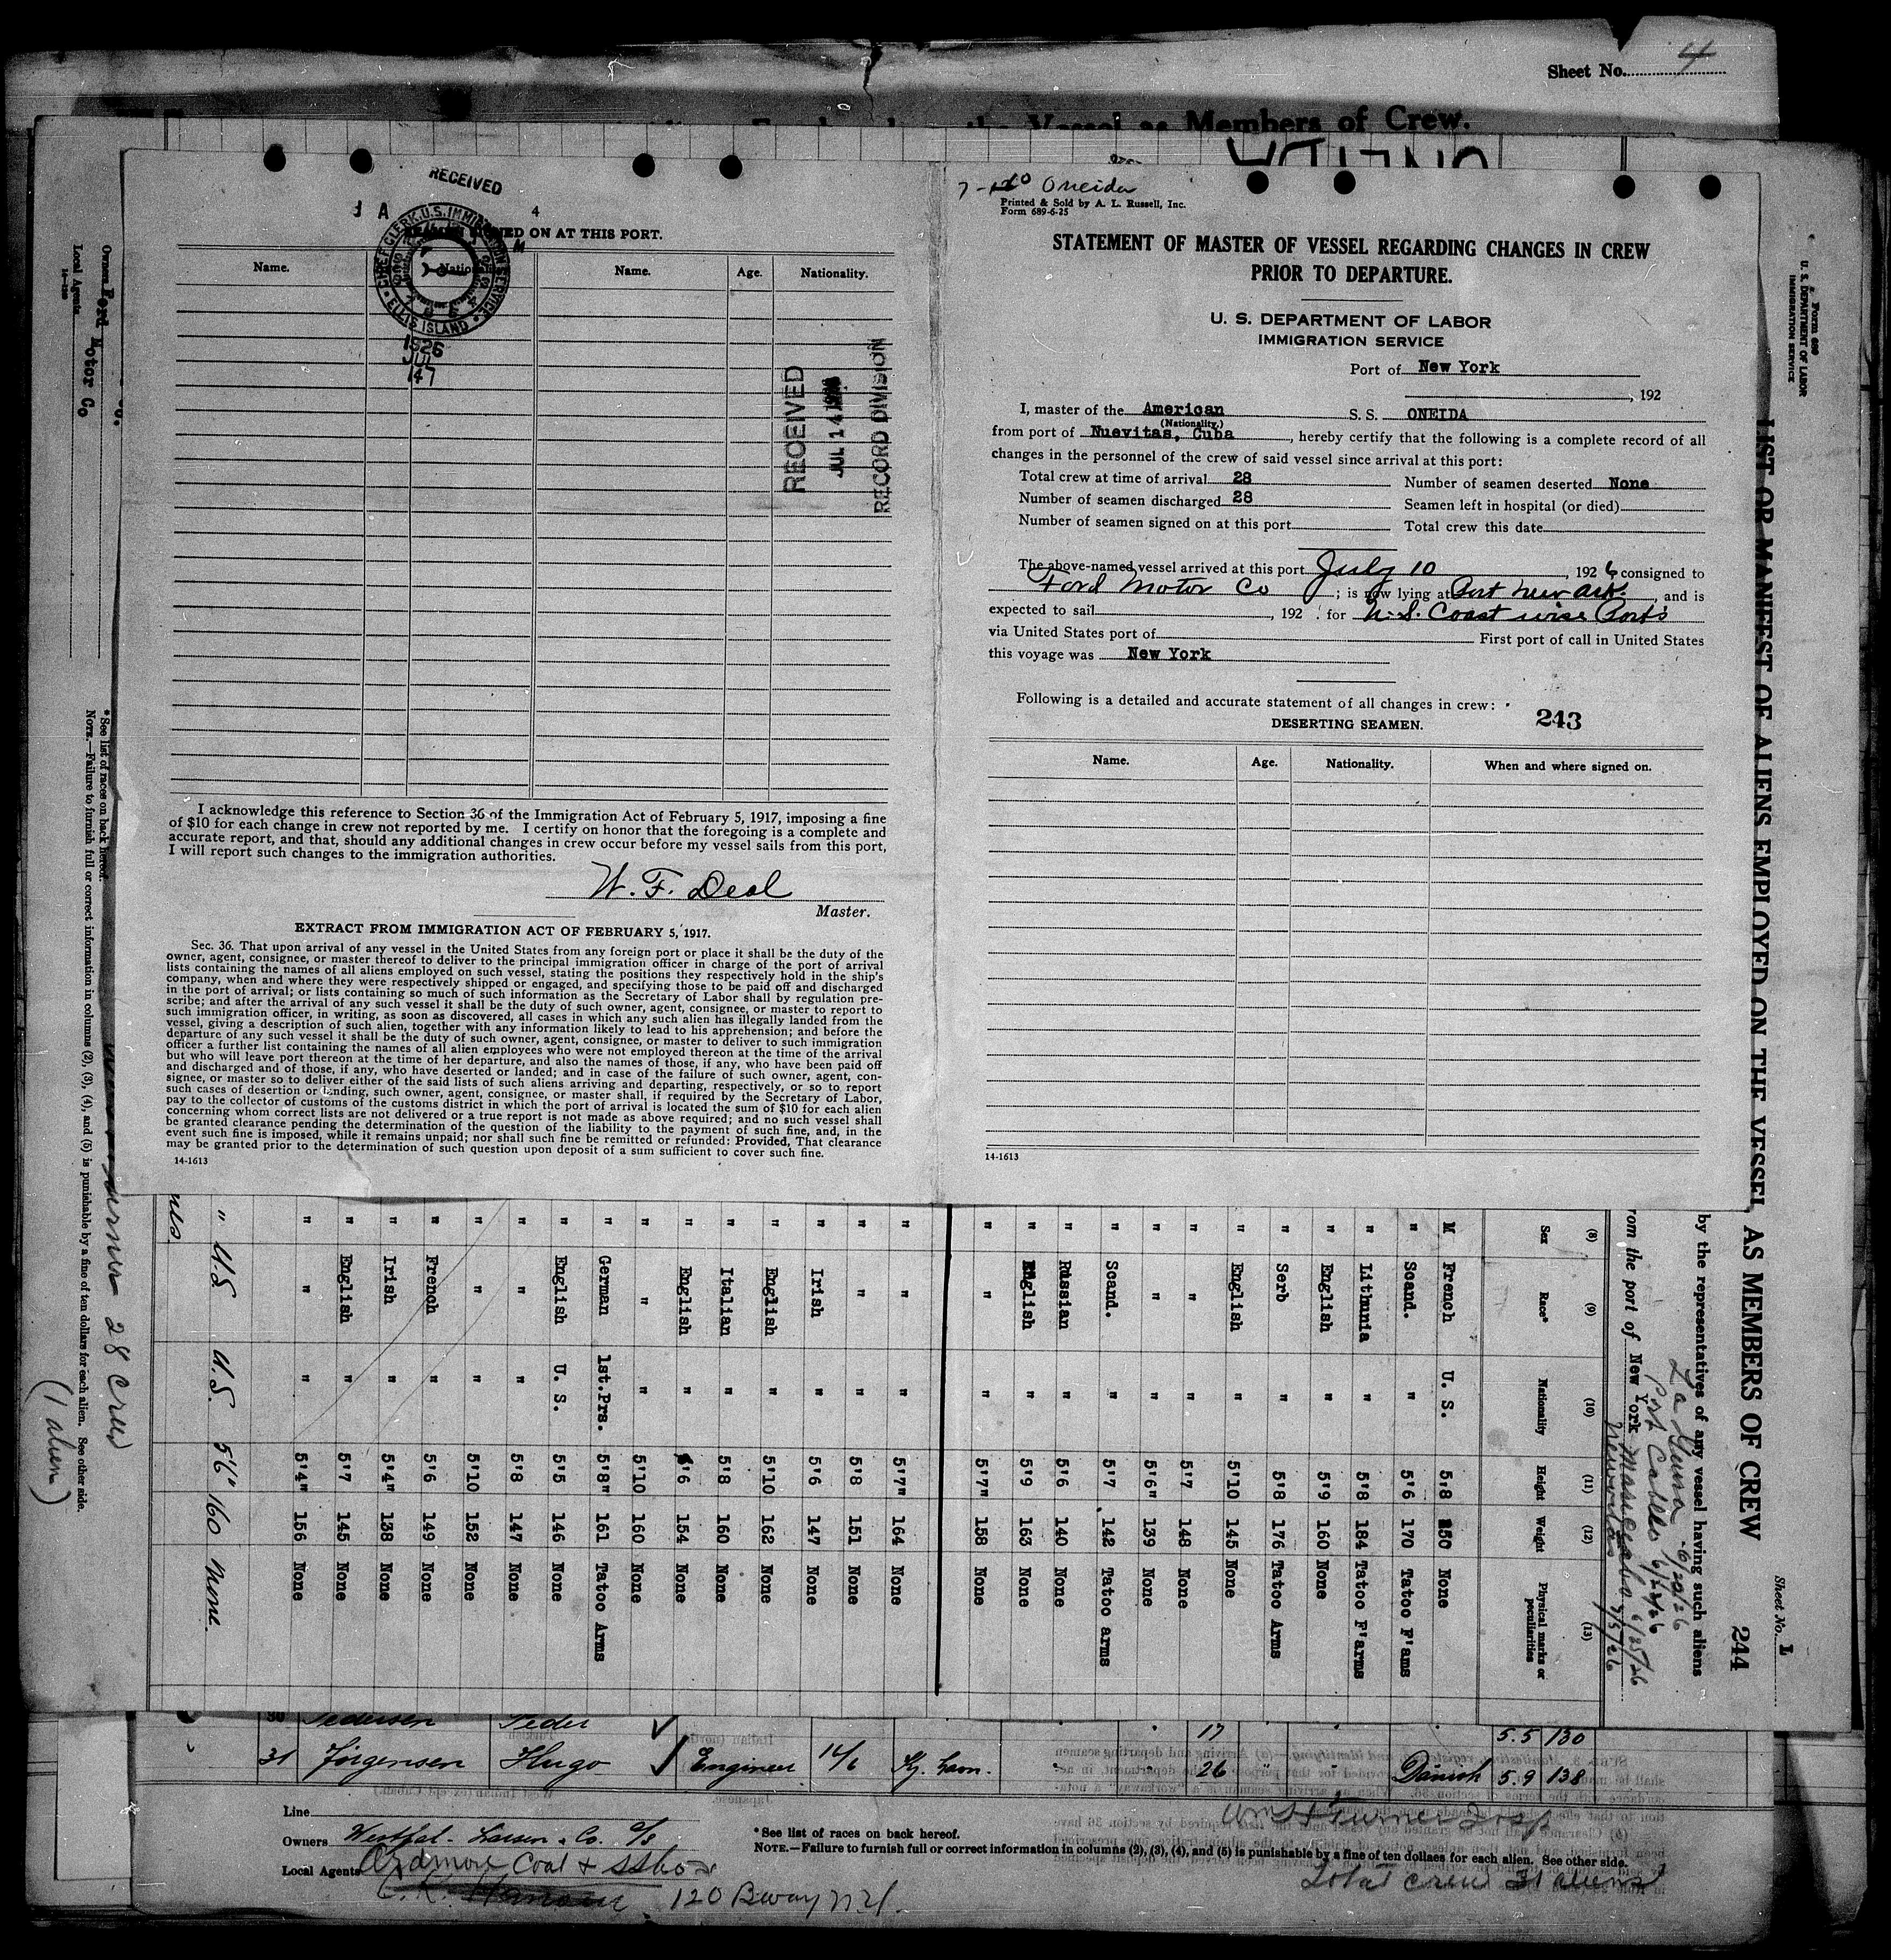 Sheet No. 4
Members of Crew.
RECEIVED
4
ED ON AT THIS PORT.
Name.
Name.
Age.
Nationality.
CHIEF CLERK, U.S. IMMIGRATION SERVICE
ELLIS ISLAND
1926
JUL
14 7
RECEIVED
JUL 14 1926
RECORD DIVISION
I acknowledge this reference to Section 36 of the Immigration Act of February 5, 1917, imposing a fine
of $10 for each change in crew not reported by me. I certify on honor that the foregoing is a complete and
accurate report, and that, should any additional changes in crew occur before my vessel sails from this port,
I will report such changes to the immigration authorities.
W. F. Deal
Master.
EXTRACT FROM IMMIGRATION ACT OF FEBRUARY 5, 1917.
Sec. 36. That upon arrival of any vessel in the United States from any foreign port or place it shall be the duty of the
owner, agent, consignee, or master thereof to deliver to the principal immigration officer in charge of the port of arrival
lists containing the names of all aliens employed on such vessel, stating the positions they respectively hold in the ship's
company, when and where they were respectively shipped or engaged, and specifying those to be paid off and discharged
in the port of arrival; or lists containing so much of such information as the Secretary of Labor shall by regulation pre-
scribe; and after the arrival of any such vessel it shall be the duty of such owner, agent, consignee, or master to report to
such immigration officer, in writing, as soon as discovered, all cases in which any such alien has illegally landed from the
vessel, giving a description of such alien, together with any information likely to lead to his apprehension; and before the
departure of any such vessel it shall be the duty of such owner, agent, consignee, or master to deliver to such immigration
officer a further list containing the names of all alien employees who were not employed thereon at the time of the arrival
but who will leave port thereon at the time of her departure, and also the names of those, if any, who have been paid off
and discharged and of those, if any, who have deserted or landed; and in case of the failure of such owner, agent, con-
signee, or master so to deliver either of the said lists of such aliens arriving and departing, respectively, or so to report
such cases of desertion or landing, such owner, agent, consignee, or master shall, if required by the Secretary of Labor,
pay to the collector of customs of the customs district in which the port of arrival is located the sum of $10 for each alien
concerning whom correct lists are not delivered or a true report is not made as above required; and no such vessel shall
be granted clearance pending the determination of the question of the liability to the payment of such fine, and, in the
event such fine is imposed, while it remains unpaid; nor shall such fine be remitted or refunded: Provided, That clearance
may be granted prior to the determination of such question upon deposit of a sum sufficient to cover such fine.
14-1613
Oneida
Printed & Sold by A. L. Russell, Inc.
Form 689-6-25
STATEMENT OF MASTER OF VESSEL REGARDING CHANGES IN CREW
PRIOR TO DEPARTURE.
U. S. DEPARTMENT OF LABOR
IMMIGRATION SERVICE
Port of New York
, 192
I, master of the American S. S. ONEIDA
(Nationality.)
from port of Nuevitas, Cuba, hereby certify that the following is a complete record of all
changes in the personnel of the crew of said vessel since arrival at this port:
Total crew at time of arrival 28 Number of seamen deserted None
Number of seamen discharged 28 Seamen left in hospital (or died)
Number of seamen signed on at this port Total crew this date
The above-named vessel arrived at this port July 10, 1926 consigned to
Ford Motor Co; is now lying at Port Newark, and is
expected to sail, 192 . for U.S. Coast wise Ports
via United States port of First port of call in United States
this voyage was New York
Following is a detailed and accurate statement of all changes in crew:
243
DESERTING SEAMEN.
Name. Age. Nationality. When and where signed on.
14-1613
Form 689
U. S. DEPARTMENT OF LABOR
IMMIGRATION SERVICE
LIST OR MANIFEST OF ALIENS EMPLOYED ON THE VESSEL AS MEMBERS OF CREW
244
Sheet No. L
by the representatives of any vessel having such aliens
La Guira 6/20/26
Port Cabello 6/22/26
rom the port of New York Maracaibo 6/25/26
Nuevitas 7/5/26
(8) (9) (10) (11) (12) (13)
Sex Race* Nationality Height Weight Physical marks or peculiarities
M French U. S. 5'8 150 None
" Scand. " 5'6 170 Tatoo F'ams
" Lithunia " 5'8 184 Tatoo F'arms
" English " 5'9 160 None
" Serb " 5'8 176 Tatoo Arms
" English " 5'10 145 None
" " " 5'7 148 None
" " " 5'6" 139 None
" Scand. " 5'7 142 Tatoo arms
" Russian " 5'6 140 None
" English " 5'9 163 None
" " " 5'7" 158 None
" " " 5'7" 164 None
" " " 5'8 151 None
" Irish " 5'6 147 None
" English " 5'10 162 None
" Italian " 5'8 160 None
" English " 5'6 154 None
" " " 5'10 160 None
" German 1st.Prs. 5'8" 161 Tatoo Arms
" English U. S. 5'5 146 None
" " " 5'8 147 None
" " " 5'10 152 None
" French " 5'6 149 None
" Irish " 5'4" 138 None
" English " 5'7 145 None
" " " 5'4" 156 None
" U.S. U.S. 5'6" 160 None.
Owners Ford Motor Co
Local Agents
14-120
*See list of races on back hereof.
NOTE.—Failure to furnish full or correct information in columns (2), (3), (4), and (5) is punishable by a fine of ten dollars for each alien. See other side.
28 Crew
(1 alien)
30 Pedersen Peder 17 5.5 130
31 Jörgensen Hugo Engineer 14/6 26 " Danish 5.9 138
Line
Owners Westfal-Larsen & Co. A/S
Local Agents Ardmore Coal & SS Co
120 Bway N.Y.
*See list of races on back hereof.
NOTE.—Failure to furnish full or correct information in columns (2), (3), (4), and (5) is punishable by a fine of ten dollars for each alien. See other side.
Total crew 31 aliens